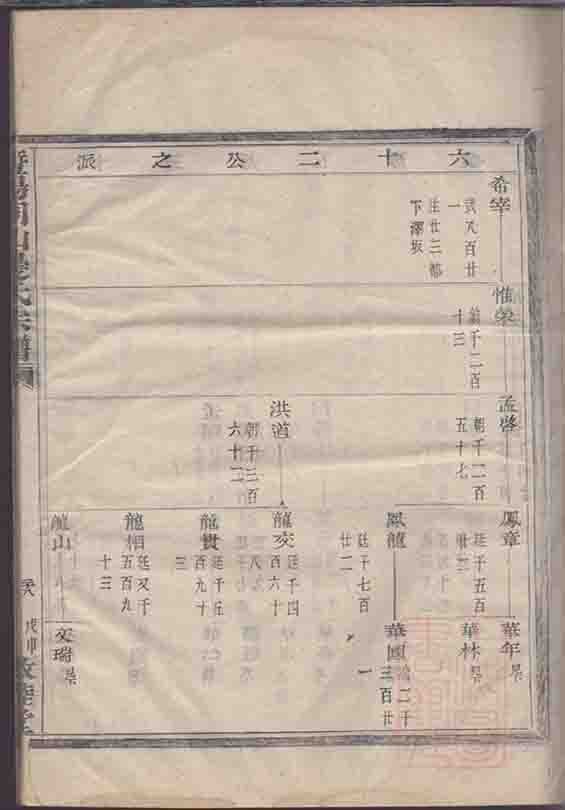 六十二公之派
希宰
武八百廿
一
庄廿三都
下澤坂
惟榮
千二百
十三
孟啓
朝千一百
五十七
洪道
朝千三百
六十二
鳳章
廷千五百
鳳龍
廷千七百
廿二
龍交
廷千四
百六十
八
龍貴
廷千五
百九十
三
龍相
廷又千
五百九
十三
龍山
華年
華林
華國
二千
三百廿
一
文瑞
氏宗譜
戊申